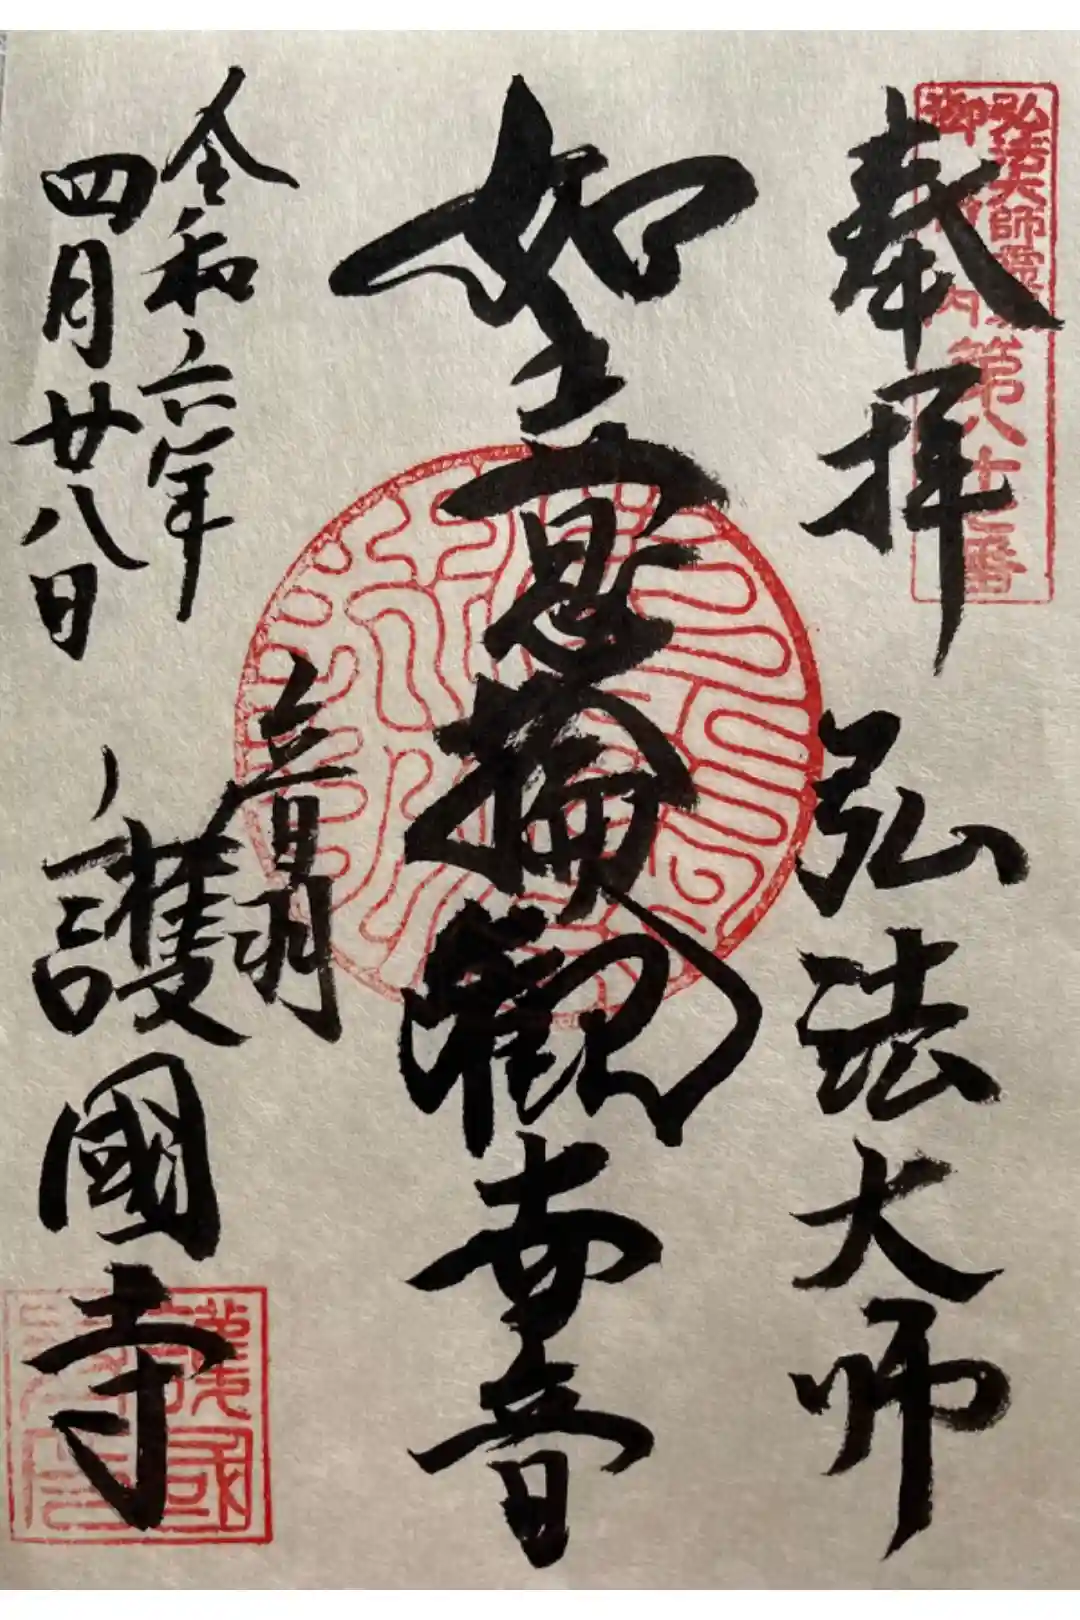 奉拝
弘法大師
弘法大師
御府内
第八十七番
如意輪觀世音
令和六年
四月廿八日
音羽
護國寺